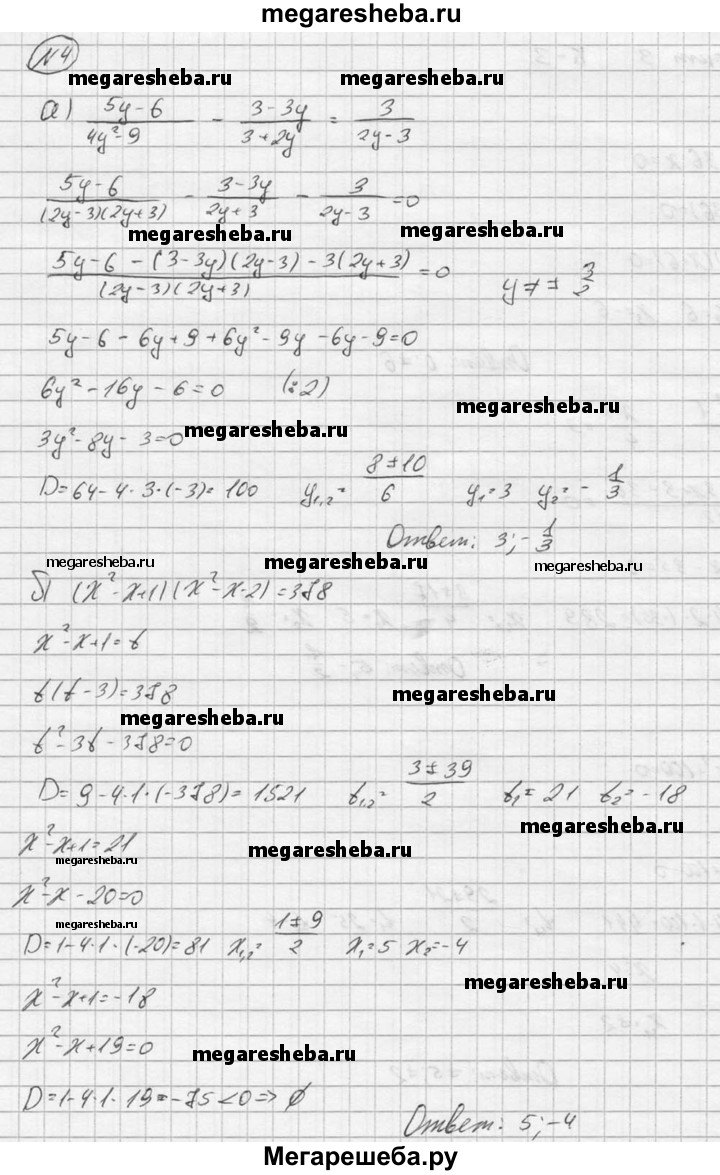 megaresheba.ru
N4
megaresheba.ru megaresheba.ru
а) (5y-6)/(4y²-9) - (3-3y)/(3+2y) = 3/(2y-3)
(5y-6)/((2y-3)(2y+3)) - (3-3y)/(2y+3) - 3/(2y-3) = 0
megaresheba.ru megaresheba.ru
(5y-6-(3-3y)(2y-3)-3(2y+3))/((2y-3)(2y+3)) = 0 y ≠ ± 3/2
5y-6-6y+9+6y²-9y-6y-9=0
6y²-16y-6=0 (:2)
megaresheba.ru
3y²-8y-3=0 megaresheba.ru
D=64-4·3·(-3)=100 y₁,₂= (8±10)/6 y₁=3 y₂= -1/3
Ответ: 3; -1/3
megaresheba.ru megaresheba.ru
б) (x²-x+1)(x²-x-2)=378
x²-x+1=t
t(t-3)=378 megaresheba.ru
megaresheba.ru
t²-3t-378=0
D=9-4·1·(-378)=1521 t₁,₂= (3±39)/2 t₁=21 t₂=-18
megaresheba.ru
x²-x+1=21
megaresheba.ru megaresheba.ru
x²-x-20=0
megaresheba.ru
D=1-4·1·(-20)=81 x₁,₂= (1±9)/2 x₁=5 x₂=-4
megaresheba.ru
x²-x+1=-18
x²-x+19=0 megaresheba.ru
D=1-4·1·19=-75<0=> ∅
Ответ: 5; -4
Мегарешеба.ру